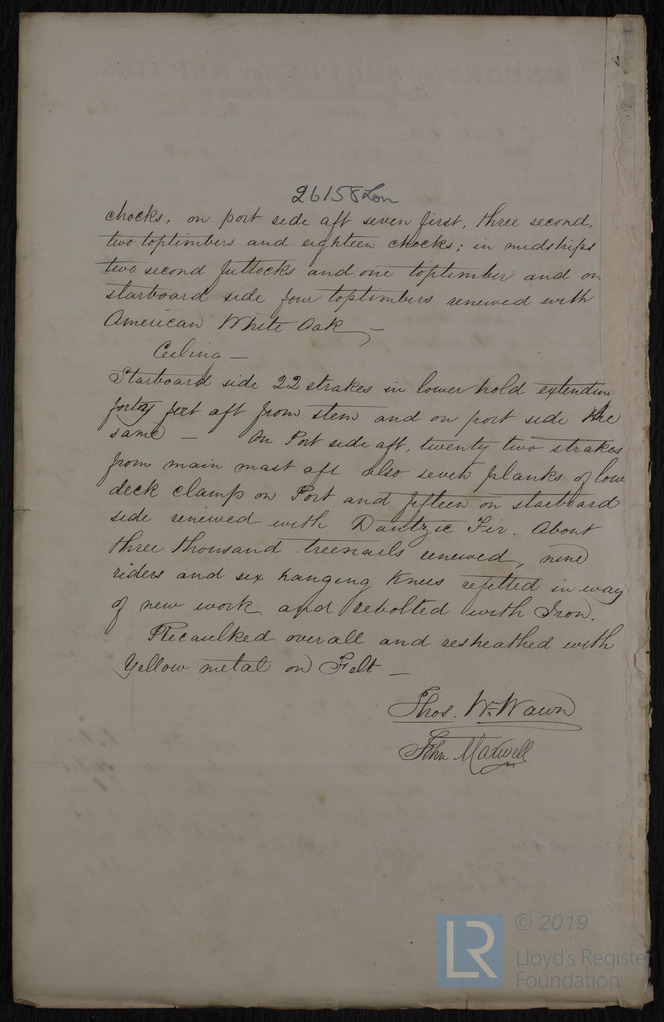 26158 Lon
chocks, on port side aft seven first, three second,
two toptimbers and eighteen chocks; in midships
two second futtocks and one toptimber and on
starboard side four toptimbers renewed with
American White Oak —
Ceiling —
Starboard side 22 strakes in lower hold extending
forty feet aft from stem and on port side the
same — On Port side aft, twenty two strakes
from main mast aft also seven planks of low
deck clamp on Port and fifteen on starboard
side renewed with Dantzic Fir. About
three thousand treenails renewed, nine
riders and six hanging Knees refitted in way
of new work and rebolted with Iron.
Recaulked overall and resheathed with
Yellow metal on Felt —
Thos. Wm. Wawn
John Maxwell
LR
© 2019
Lloyd's Register
Foundation